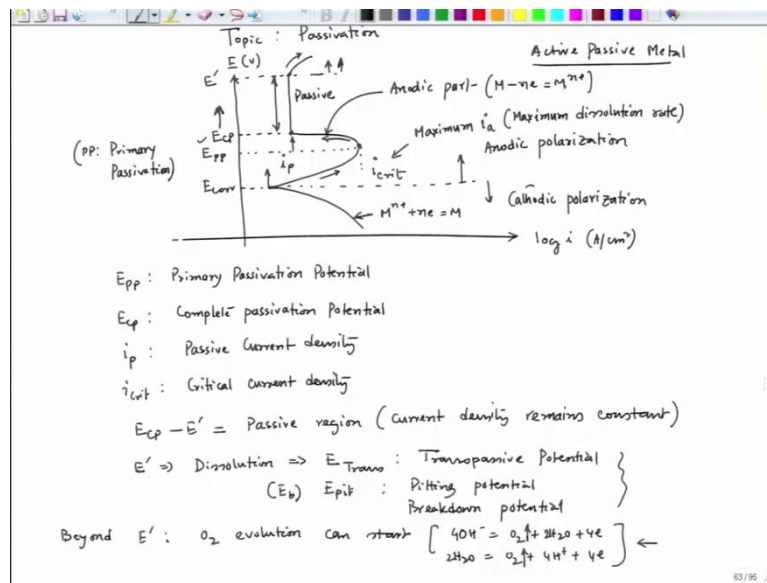 Topic : Passivation
E(v)
Active Passive Metal
E'
Passive
Anodic part - (M-ne = M^n+)
Ecp
Maximum ia (Maximum dissolution rate)
(PP: Primary
Passivation)
Epp
ip
icrit
Anodic polarization
Ecorr
Cathodic polarization
M^n+ + ne = M
log i (A/cm²)
Epp : Primary Passivation Potential
Ecp : Complete passivation Potential
ip : Passive Current density
icrit : Critical current density
Ecp - E' = Passive region (current density remains constant)
E' => Dissolution => ETrans : Transpassive Potential
(Eb) Epit : Pitting potential
Breakdown potential
Beyond E' : O2 evolution can start [ 4OH⁻ = O2↑ + 2H2O + 4e
2H2O = O2↑ + 4H⁺ + 4e ] ←
63/95